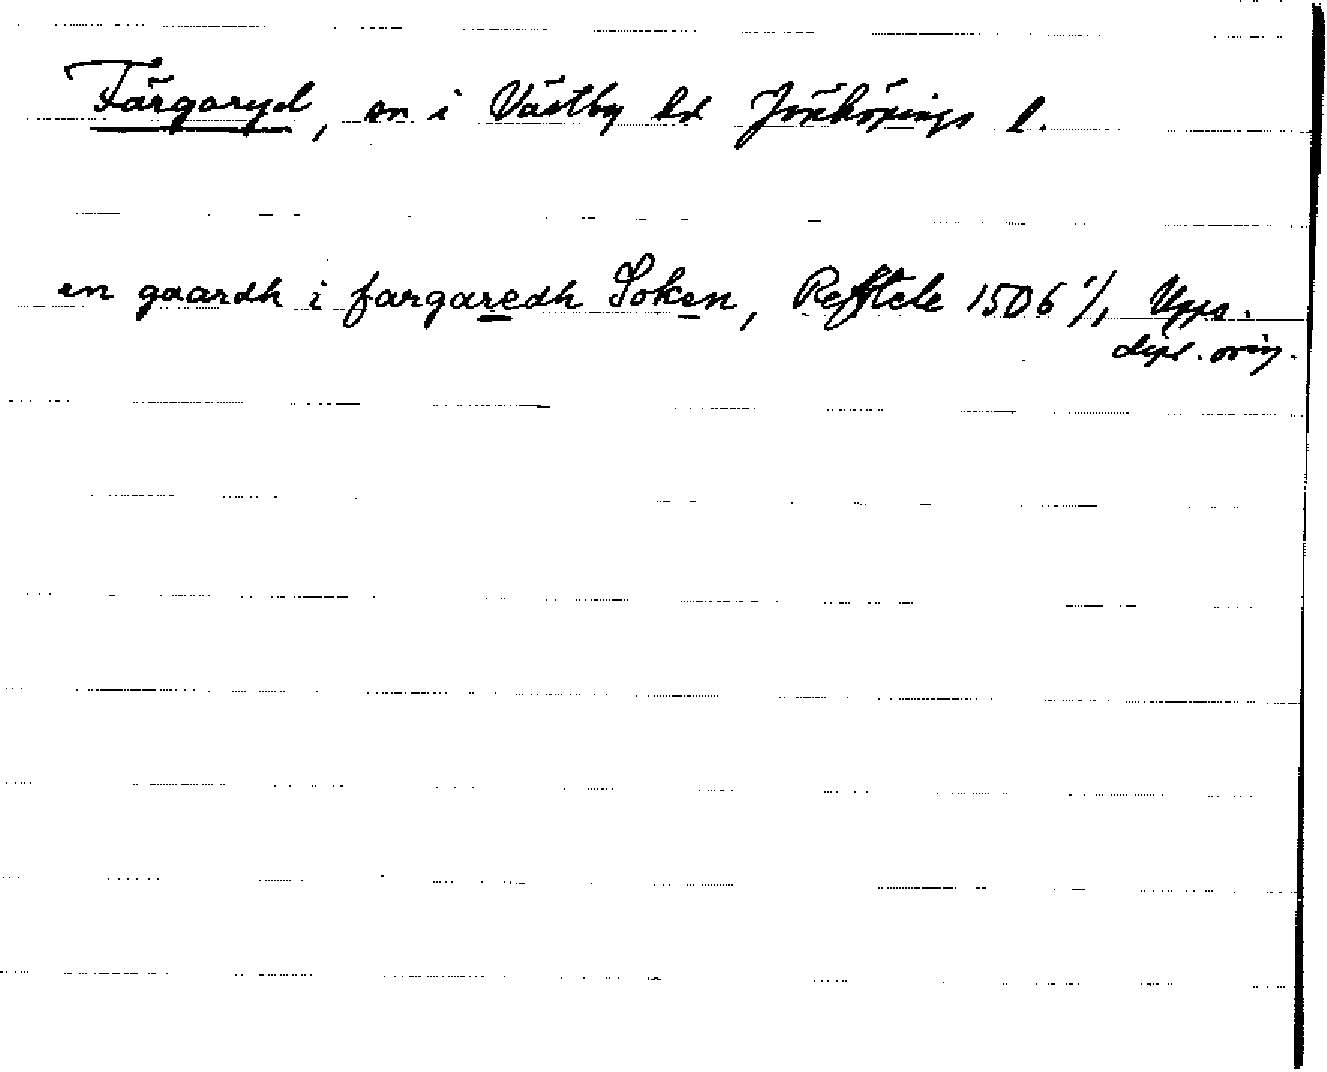 Färgaryd, sn i Västbo hd Jönköpings l.
en gaardh i fargaredh Soken, Reftele 1506 1/1 Upps.
dipl. orig.